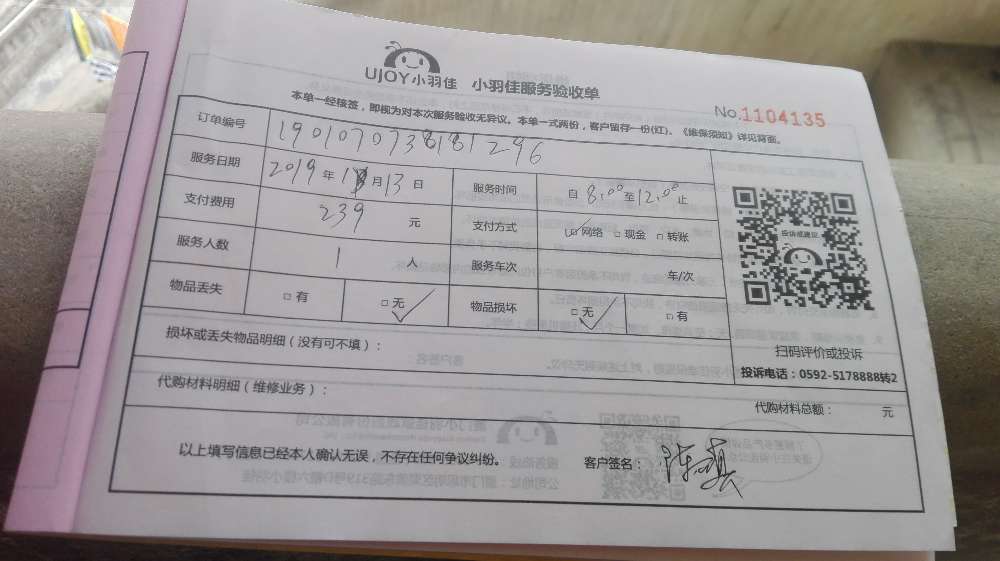 UJOY小羽佳 小羽佳服务验收单
No.1104135
本单一经核签，即视为对本次服务验收无异议。本单一式两份，客户留存一份(红)。《维保须知》详见背面。
订单编号 1901070738181296
服务日期 2019年1月13日 服务时间 自8:00至12:00止
支付费用 239元 支付方式 □网络 □现金 □转账
服务人数 1人 服务车次 车/次
物品丢失 □有 □无 物品损坏 □无 □有
投诉或建议
扫码评价或投诉
投诉电话：0592-5178888转2
损坏或丢失物品明细（没有可不填）：
代购材料明细（维修业务）： 代购材料总额： 元
以上填写信息已经本人确认无误，不存在任何争议纠纷。 客户签名：陈